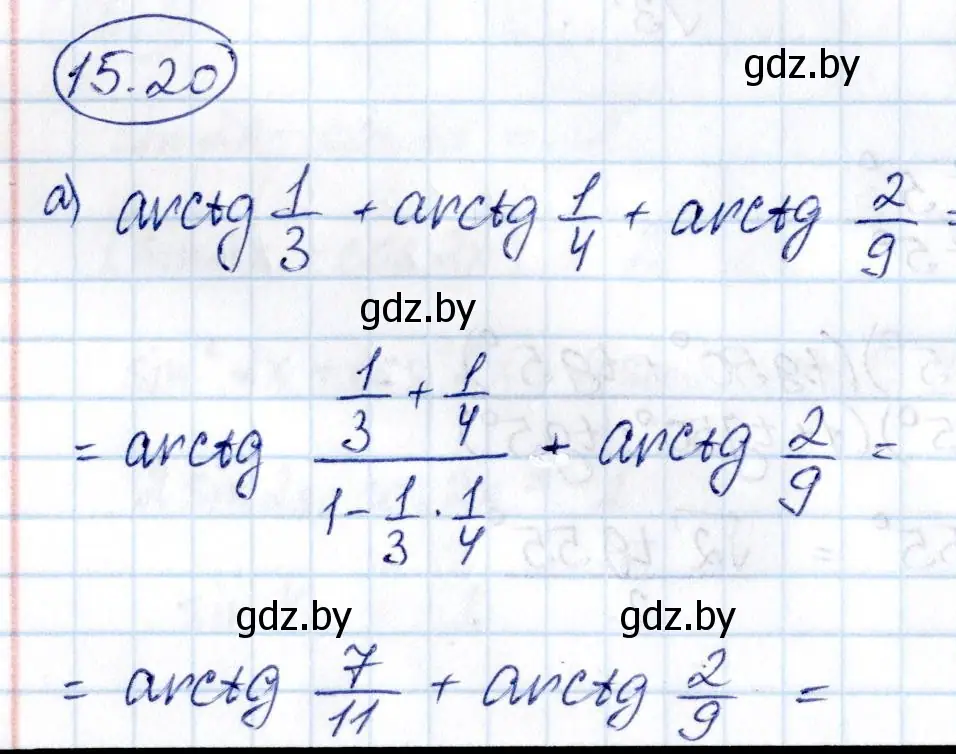 15.20
gdz.by
а) arctg 1/3 + arctg 1/4 + arctg 2/9 =
gdz.by
= arctg (1/3 + 1/4)/(1 - 1/3 · 1/4) + arctg 2/9 =
gdz.by gdz.by
= arctg 7/11 + arctg 2/9 =